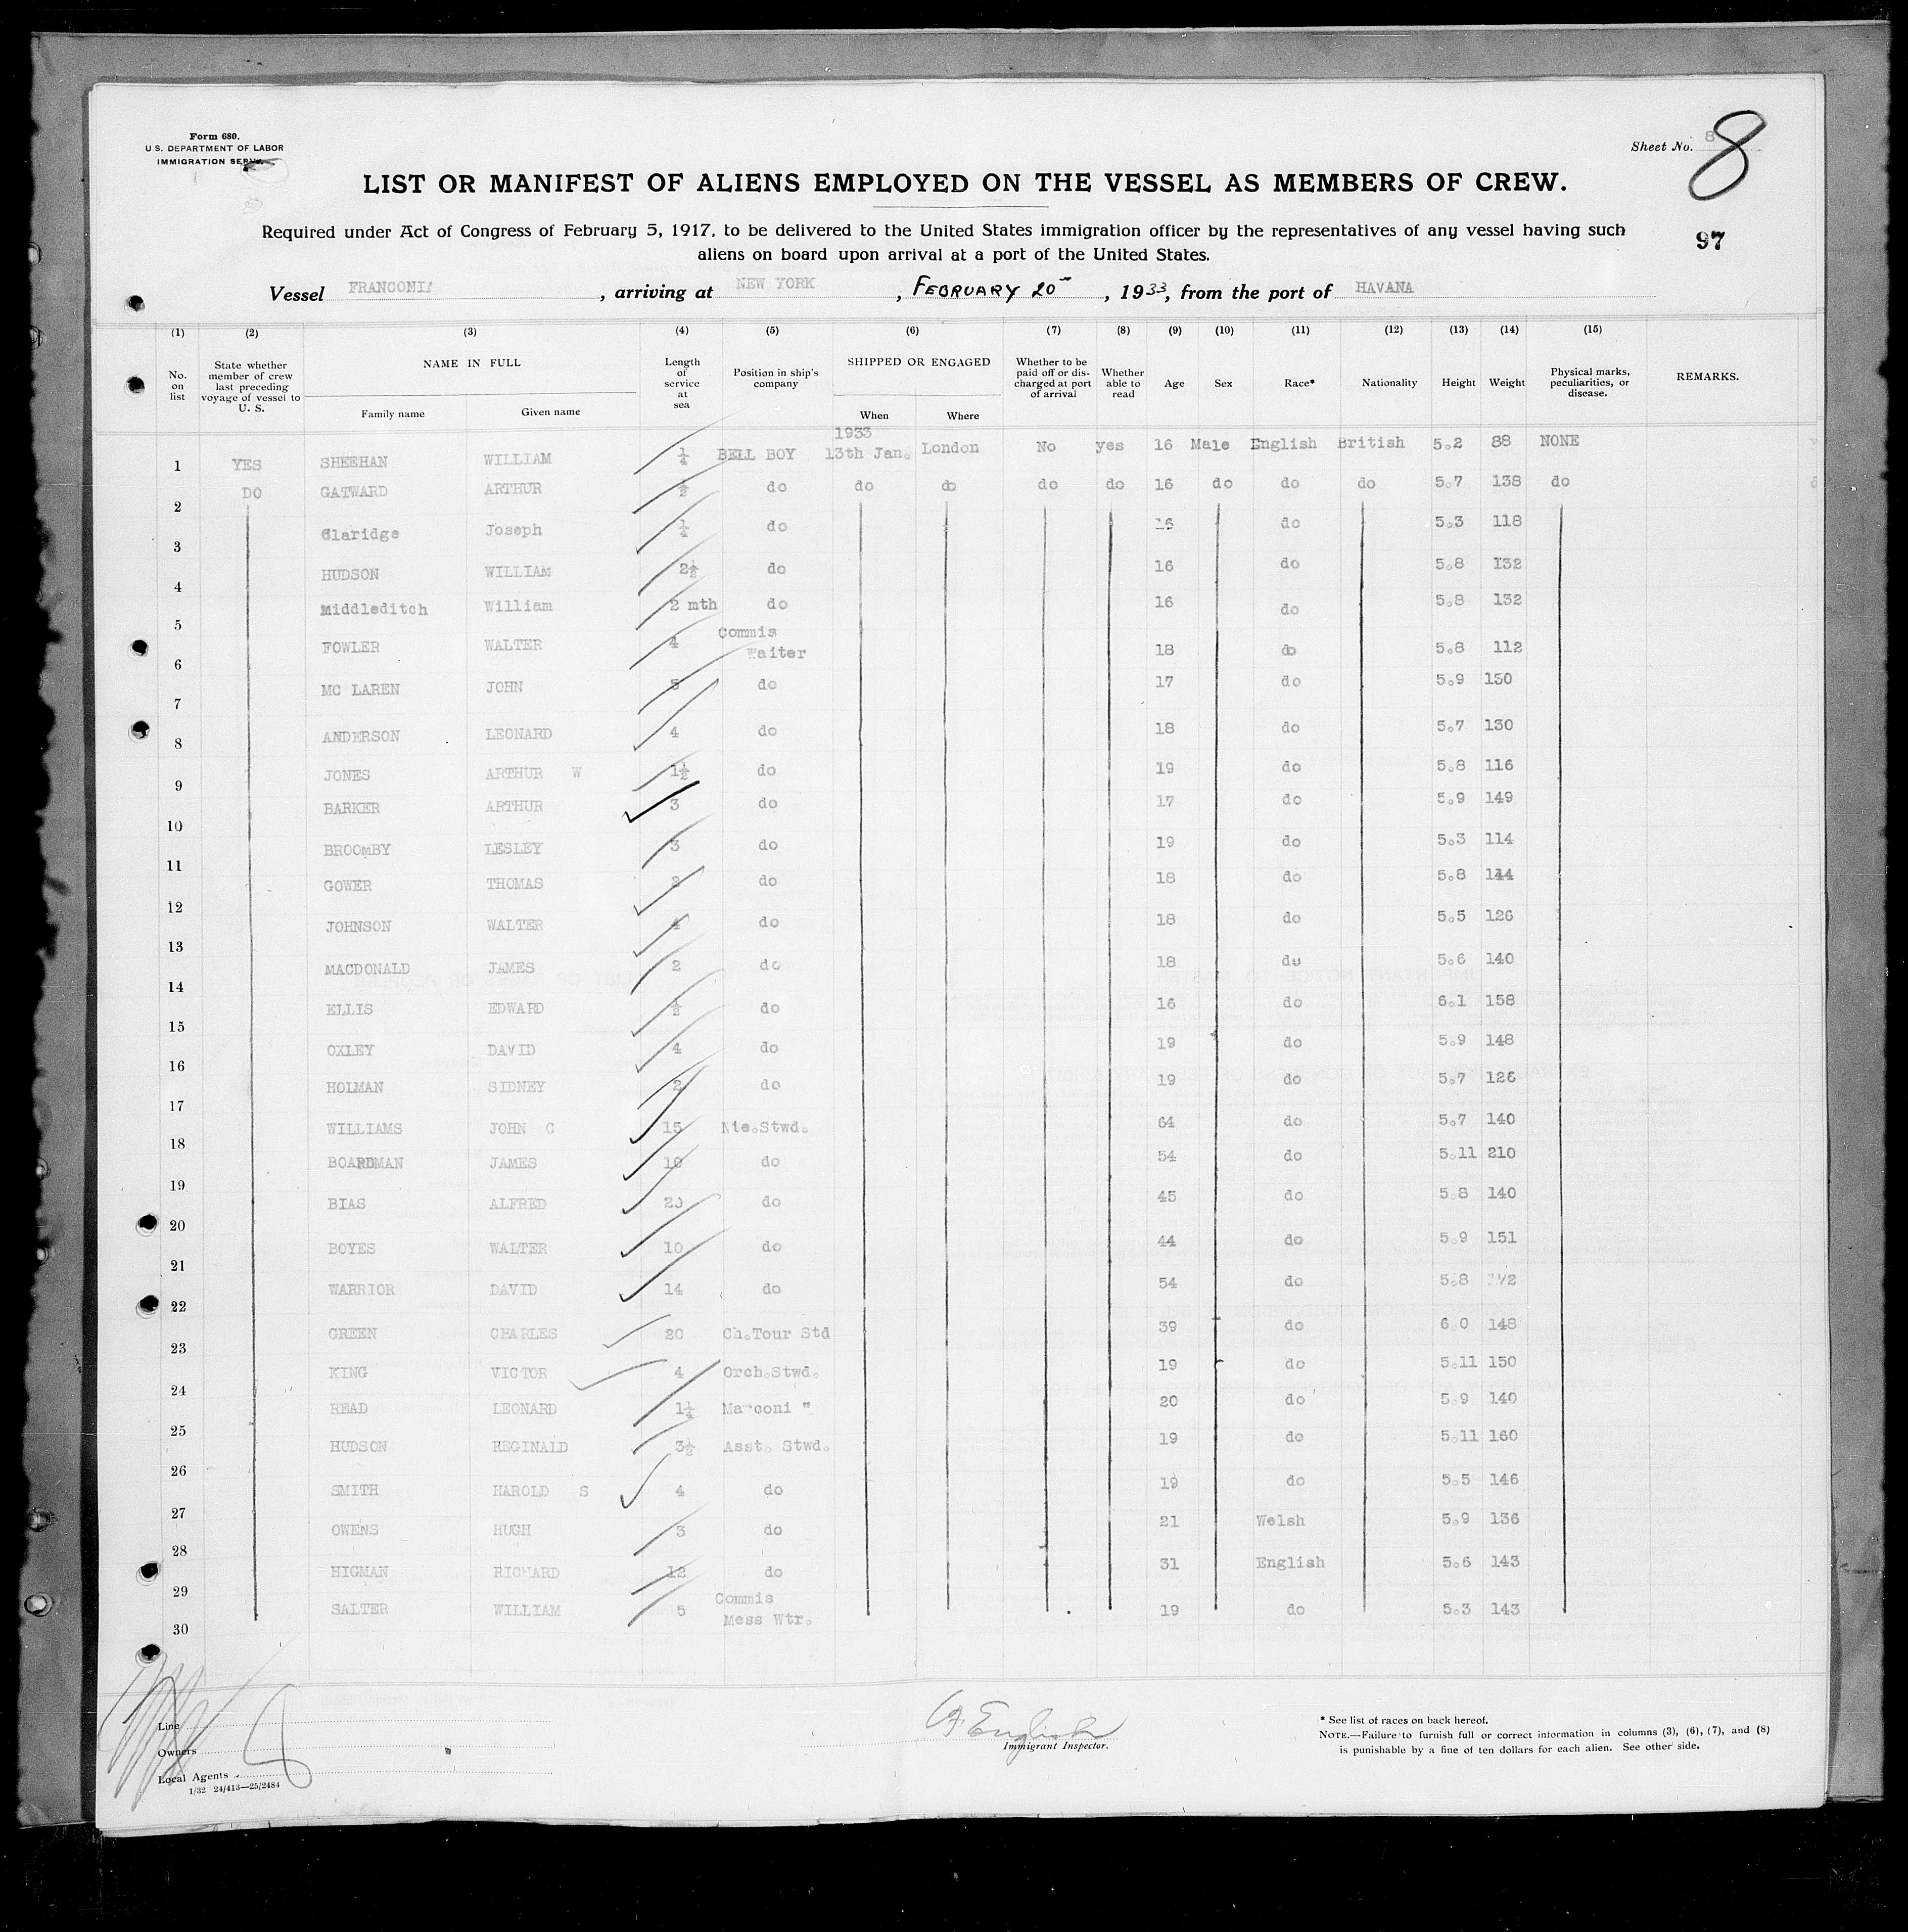 Form 680.
U. S. DEPARTMENT OF LABOR
IMMIGRATION SERV
Sheet No. 8
8
LIST OR MANIFEST OF ALIENS EMPLOYED ON THE VESSEL AS MEMBERS OF CREW.
Required under Act of Congress of February 5, 1917, to be delivered to the United States immigration officer by the representatives of any vessel having such
97
aliens on board upon arrival at a port of the United States.
Vessel FRANCONIA, arriving at NEW YORK, FEBRUARY 20, 1933, from the port of HAVANA
(1) (2) (3) (4) (5) (6) (7) (8) (9) (10) (11) (12) (13) (14) (15)
No. on list State whether member of crew last preceding voyage of vessel to U. S. NAME IN FULL Family name Given name Length of service at sea Position in ship's company SHIPPED OR ENGAGED When Where Whether to be paid off or discharged at port of arrival Whether able to read Age Sex Race* Nationality Height Weight Physical marks, peculiarities, or disease. REMARKS.
1 YES SHEEHAN WILLIAM ¼ BELL BOY 1933 13th Jan. London No yes 16 Male English British 5.2 88 NONE
2 DO GATWARD ARTHUR ½ do do do do do 16 do do do 5.7 138 do
3 Claridge Joseph ¼ do 16 do 5.3 118
4 HUDSON WILLIAM 2½ do 16 do 5.8 132
5 Middleditch William 2 mth do 16 do 5.8 132
6 FOWLER WALTER 4 Commis Waiter 18 do 5.8 112
7 MC LAREN JOHN 5 do 17 do 5.9 130
8 ANDERSON LEONARD 4 do 18 do 5.7 130
9 JONES ARTHUR W 1½ do 19 do 5.8 116
10 BARKER ARTHUR 3 do 17 do 5.9 149
11 BROOMBY LESLEY 3 do 19 do 5.3 114
12 GOWER THOMAS 2 do 18 do 5.8 144
13 JOHNSON WALTER 4 do 18 do 5.5 126
14 MACDONALD JAMES 2 do 18 do 5.6 140
15 ELLIS EDWARD ½ do 16 do 6.1 158
16 OXLEY DAVID 4 do 19 do 5.9 148
17 HOLMAN SIDNEY 2 do 19 do 5.7 126
18 WILLIAMS JOHN C 15 Nte.Stwd. 64 do 5.7 140
19 BOARDMAN JAMES 10 do 54 do 5.11 210
20 BIAS ALFRED 20 do 45 do 5.8 140
21 BOYES WALTER 10 do 44 do 5.9 151
22 WARRIOR DAVID 14 do 54 do 5.8
23 GREEN CHARLES 20 Ch.Tour Std 39 do 6.0 148
24 KING VICTOR 4 Orch.Stwd. 19 do 5.11 150
25 READ LEONARD 1¼ Marconi " 20 do 5.9 140
26 HUDSON REGINALD 3½ Asst. Stwd. 19 do 5.11 160
27 SMITH HAROLD S 4 do 19 do 5.5 146
28 OWENS HUGH 3 do 21 Welsh 5.9 136
29 HIGMAN RICHARD 12 do 31 English 5.6 143
30 SALTER WILLIAM 5 Commis Mess Wtr. 19 do 5.3 143
Line
Owners
Local Agents
1/32 24/413—25/2484
English
Immigrant Inspector.
* See list of races on back hereof.
NOTE.—Failure to furnish full or correct information in columns (3), (6), (7), and (8)
is punishable by a fine of ten dollars for each alien. See other side.